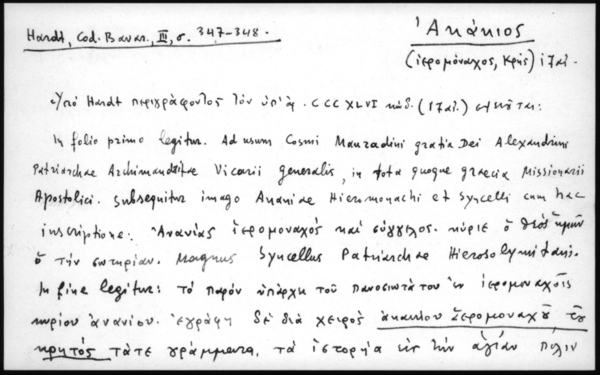 Hardt, Cod. Bavar., III, σ. 347-348.
Ἀκάκιος
(ἱερομόναχος, Κρής) 17 αἰ.
Ὑπό Hardt περιγράφοντος τόν ὑπ' ἀρ. CCCXLVI κώδ. (17 αἰ.)
In folio primo legitur. Ad usum Cosmi Mauradini gratia Dei Alexandrini
Patriarchae Archimandritae Vicarii generalis, in tota quoque graecia Missionarii
Apostolici. Subsequitur imago Ananiae Hieromonachi et Syncelli cum hac
inscriptione: Ἀνανίας ἱερομοναχός καί σύγγιλος. κύριε ὁ θεός ἡμῶν
ὁ τήν σωτηρίαν. Magnus Syncellus Patriarchae Hierosolymitani.
In fine legitur: τό παρόν ὑπάρχη τοῦ πανοσιωτάτου ἐν ἱερομοναχοῖς
κυρίου ἀνανίου. ἐγράφη δέ διά χειρός ἀκακίου ἱερομοναχοῦ, τοῦ
κρητός τάτε γράμματα, τά ἱστορήα εἰς τήν ἁγίαν πόλιν